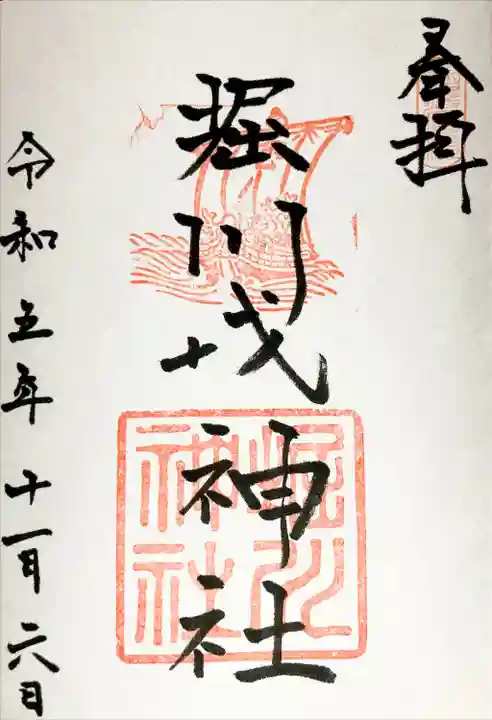 奉拝
堀川戎神社
堀川
神社
令和五年十一月六日